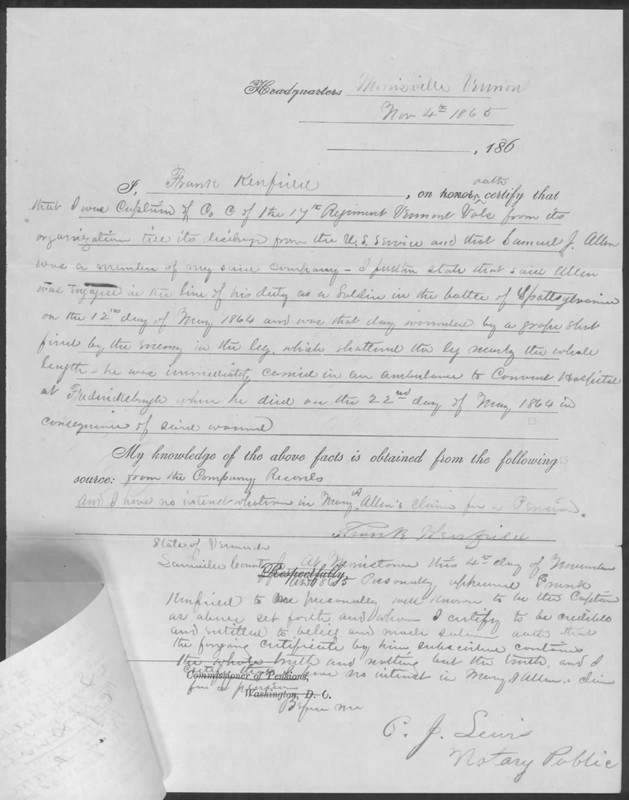 Headquarters Morrisville Vermon
Nov 4th 1865
, 186
I, Frank Kenfield, on honor oath certify that
that I was Captain of Co C of the 17th Regiment Vermont Vols from its
organization till its discharge from the U.S. Service and that Samuel J. Allen
was a member of my said company - I further state that said Allen
was engaged in the line of his duty as a Soldier in the battle of Spottsylvania
on the 12th day of May 1864 and was that day wounded by a grape shot
fired by the enemy in the leg, which shattered the leg nearly the whole
length - he was immediately carried in an ambulance to Convent Hospital
at Fredericksburgh where he died on the 22nd day of May 1864 in
consequence of said wound
My knowledge of the above facts is obtained from the following
source: from the Company Records
and I have no interest whatever in Mary A Allen's claim for a Pension.
Frank Kenfield
State of Vermont
Lamoille County At Morristown this 4th day of November
Respectfully, 1865 Personally appeared Frank
Kenfield to me personally well known to be the Captain
as above set forth, and whom I certify to be credible
and entitled to belief and made oath that
the forgoing certificate by him subscribed contains
the whole truth and nothing but the truth, and I
certify that I have no interest in Mary A Allen's claim
Commissioner of Pensions,
for a pension
Washington, D. C.
Before me
C. J. Lewis
Notary Public